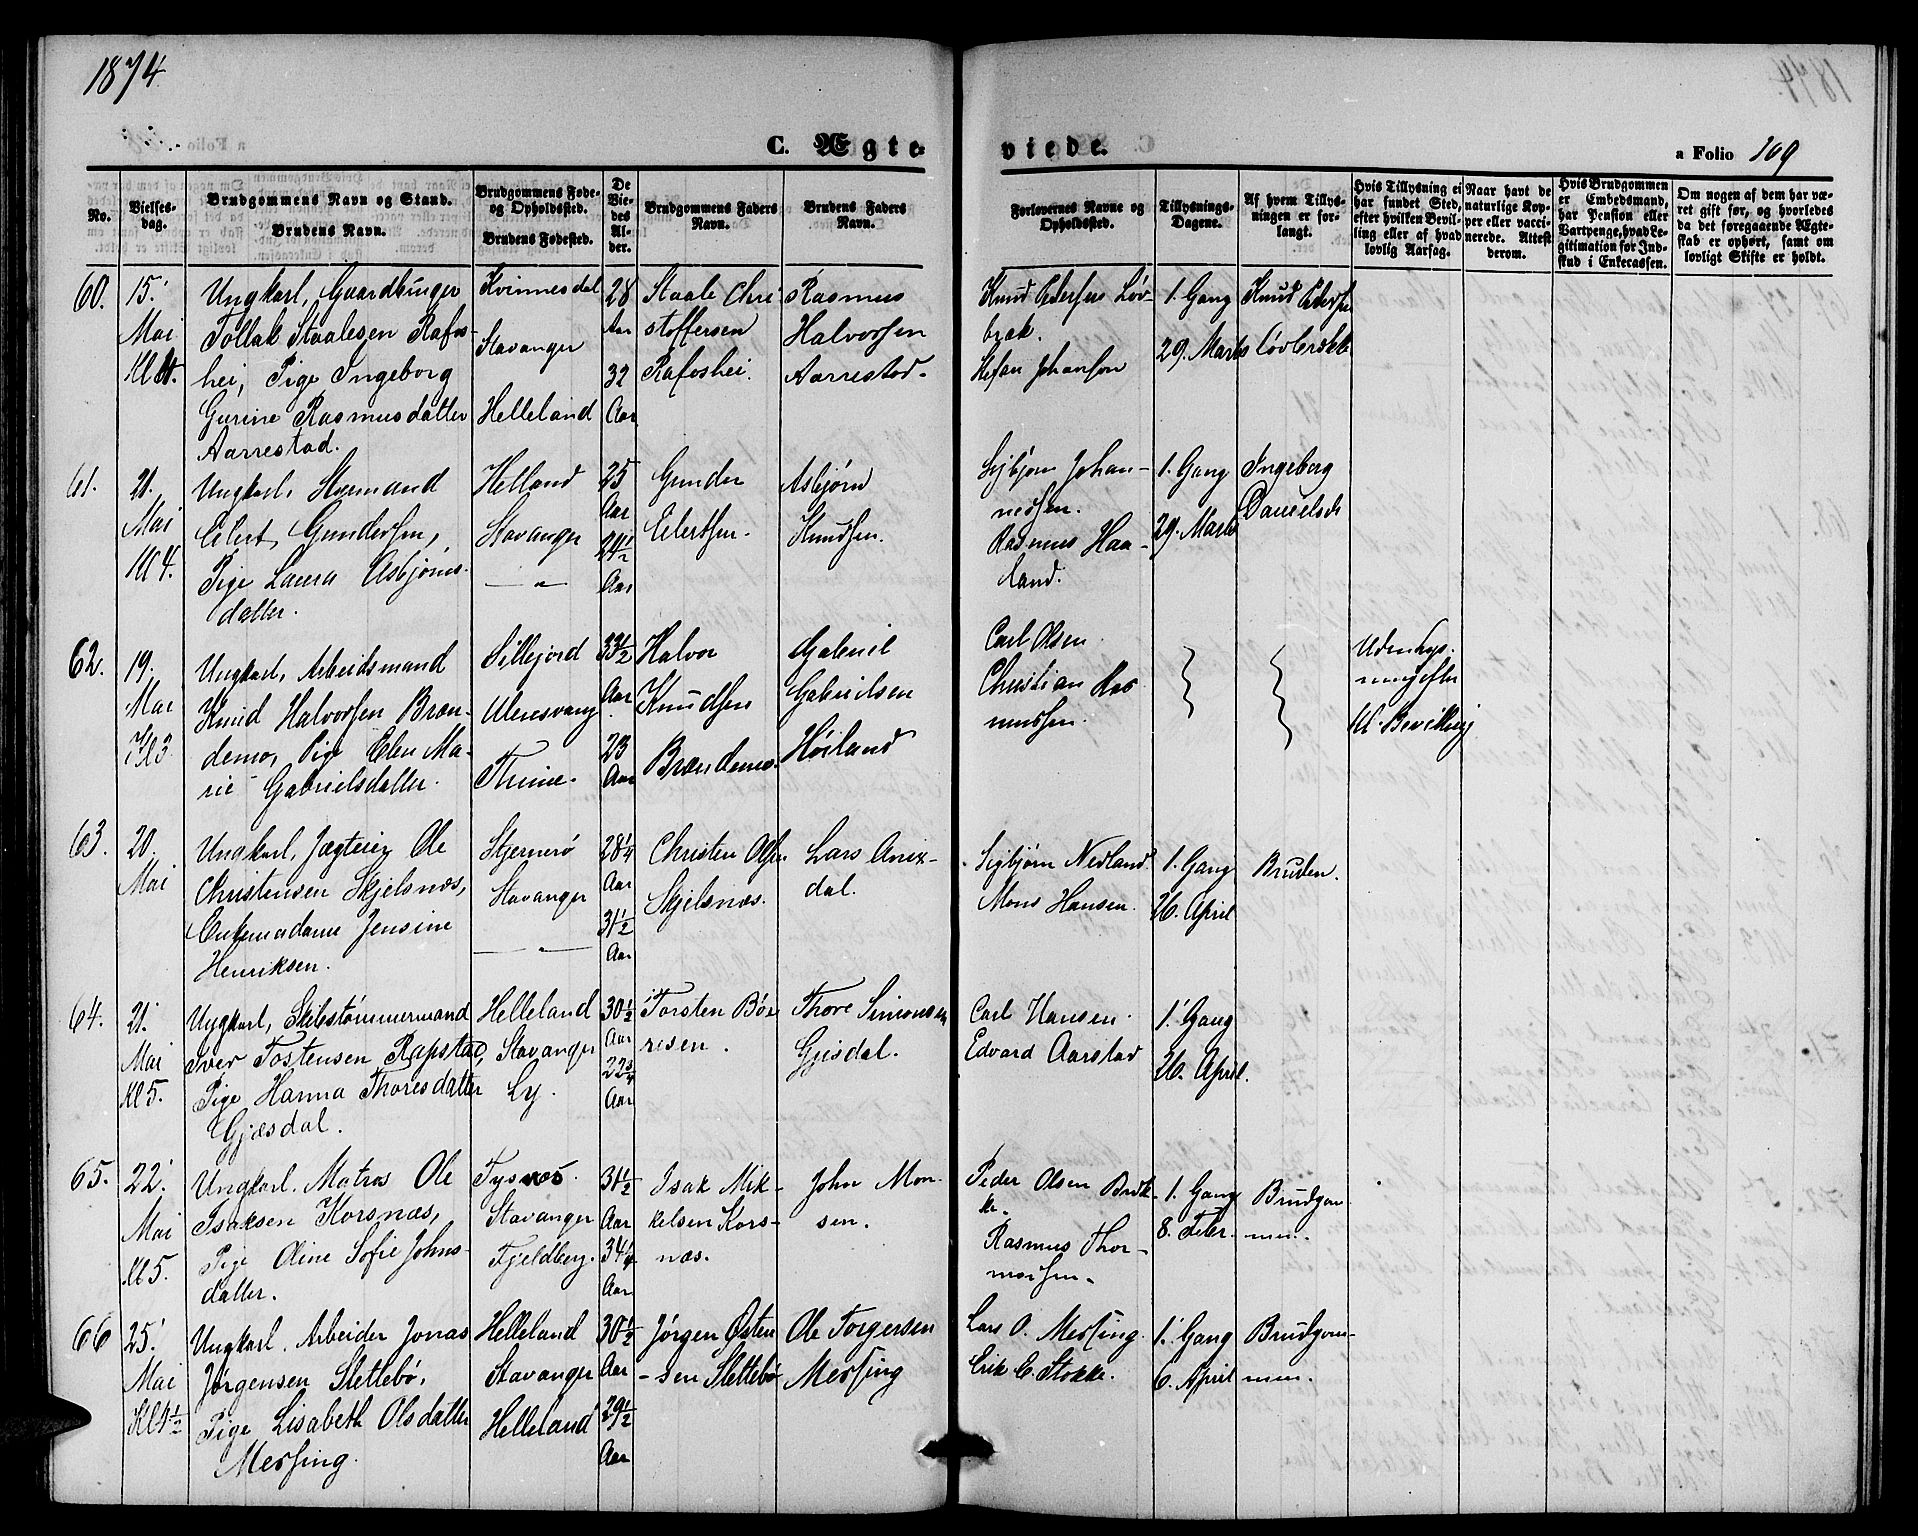 1874
C. Ægte-
viede.
a Folio 109
No.
Vielses-
dag.
Brudgommens Navn og Stand.
Brudens Navn.
Brudgommens Føde-
og Opholdssted.
Brudens Fødested.
De
Vie-
des
Al-
der.
Brudgommens Faders
Navn.
Brudens Faders
Navn.
Forlovernes Navne og
Opholdssted.
Tillysnings-
Dagene.
Af hvem Tillys-
ningen er for-
langt.
Hvis Tillysning ei
har fundet Sted,
efter hvilken Bevil-
ling eller af hvad
lovlig Aarsag.
Naar havt de
naturlige Kop-
per eller vacci-
nerede. Attest
derom.
Hvis Brudgommen
er Embedsmand,
har Pension eller
Vartpenge, hvad Le-
gitimation for Ind-
skud i Enkecassen.
Om nogen af dem har væ-
ret gift før, og hvorledes
da det foregaaende Ægte-
skab er ophørt, samt om
lovligt Skifte er holdt.
60.
15.
Mai
Kl 4.
Ungkarl, Gaardbruger
Tollak Staalesen Rafos-
hei, Pige Ingeborg
Gurine Rasmusdatter
Aarrestad.
Kvinnesdal
Stavanger
Helleland
28
Aar
32
Aar
Staale Chri
stoffersen
Rafoshei.
Rasmus
Halvorsen
Aarrestad.
Knud Pedersen Løv-
bræk.
Stefan Johansen
1. Gang
29. Marts
Knud Pedersen
Løvbrækk
61.
21.
Mai
Kl 4.
Ungkarl, Styrmand
Eilert Gundersen,
Pige Laura Asbjørns-
datter.
Helland
Stavanger
— " —
25
Aar
24½
Aar
Gunder
Eilertsen.
Asbjørn
Knudsen.
Sigbjørn Johan-
nessen.
Rasmus Haa-
land.
1. Gang
29. Marts
Ingeborg
Danielsdr
62.
19.
Mai
Kl 3.
Ungkarl, Arbeidsmand
Knud Halvorsen Bræn-
demo, Pige Elen Ma-
rie Gabrielsdatter.
Sillejord
Ulensvang
Thime.
33½
Aar
23
Aar
Halvor
Knudsen
Brændemo.
Gabriel
Gabrielsen
Høiland
Carl Olsen
Christian Ras
mussen.
Uden Lys-
ning efter
Kl. Bevilling
63.
20.
Mai
Ungkarl, Jægteier Ole
Christensen Skjelsnæs,
Enkemadame Jensine
Henriksen.
Stjernerø
Stavanger
— " —
28¼
Aar
31½
Aar
Christen Olsen
Skjelsnæs.
Lars Anix-
dal.
Sigbjørn Nedland
Mons Hansen.
1. Gang
26. April
Bruden.
64.
21.
Mai
Kl 5.
Ungkarl, Skibstømmermand
Iver Tostensen Rapstad,
Pige Hanna Thoresdatter
Gjæsdal.
Helleland
Stavanger
Ly.
30½
Aar
22¾
Aar
Torsten Bøe
resen.
Thore Simonsen
Gjesdal.
Carl Hansen
Edvard Aarstad
1. Gang
26. April.
65.
22.
Mai
Kl 5.
Ungkarl, Matros Ole
Isaksen Korsnæs,
Pige Oline Sofie Johns-
datter.
Tysnæs.
Stavanger
Fjeldberg.
31½
Aar
34¼
Aar
Isak Mik-
kelsen Kors-
næs.
John Mon-
sen.
Peder Olsen Bræk-
ke.
Rasmus Thor-
modsen.
1. Gang
8. Febr.
Brudgom-
men.
66
25.
Mai
Kl 4½
Ungkarl, Arbeider Jonas
Jørgensen Slettebø,
Pige Lisabeth Olsdatter
Mersing.
Helleland
Stavanger
Helleland
30½
Aar
29½
Aar
Jørgen Østen
-sen Slettebø
Ole Torgersen
Mersing
Lars O. Mersing.
Erik C. Stokke.
1. Gang
6. April
Brudgom-
men.